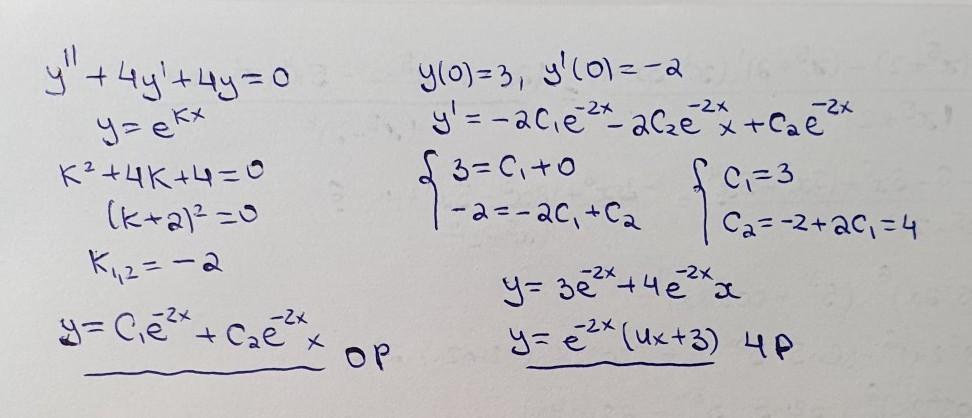 y'' + 4y' + 4y = 0
y = e^{kx}
k² + 4k + 4 = 0
(k+2)² = 0
k₁,₂ = -2
y = C₁e^{-2x} + C₂e^{-2x} x ОР
y(0) = 3, y'(0) = -2
y' = -2C₁e^{-2x} - 2C₂e^{-2x} x + C₂e^{-2x}
{ 3 = C₁ + 0 { C₁ = 3
-2 = -2C₁ + C₂ C₂ = -2 + 2C₁ = 4
y = 3e^{-2x} + 4e^{-2x} x
y = e^{-2x} (4x+3) ЧР